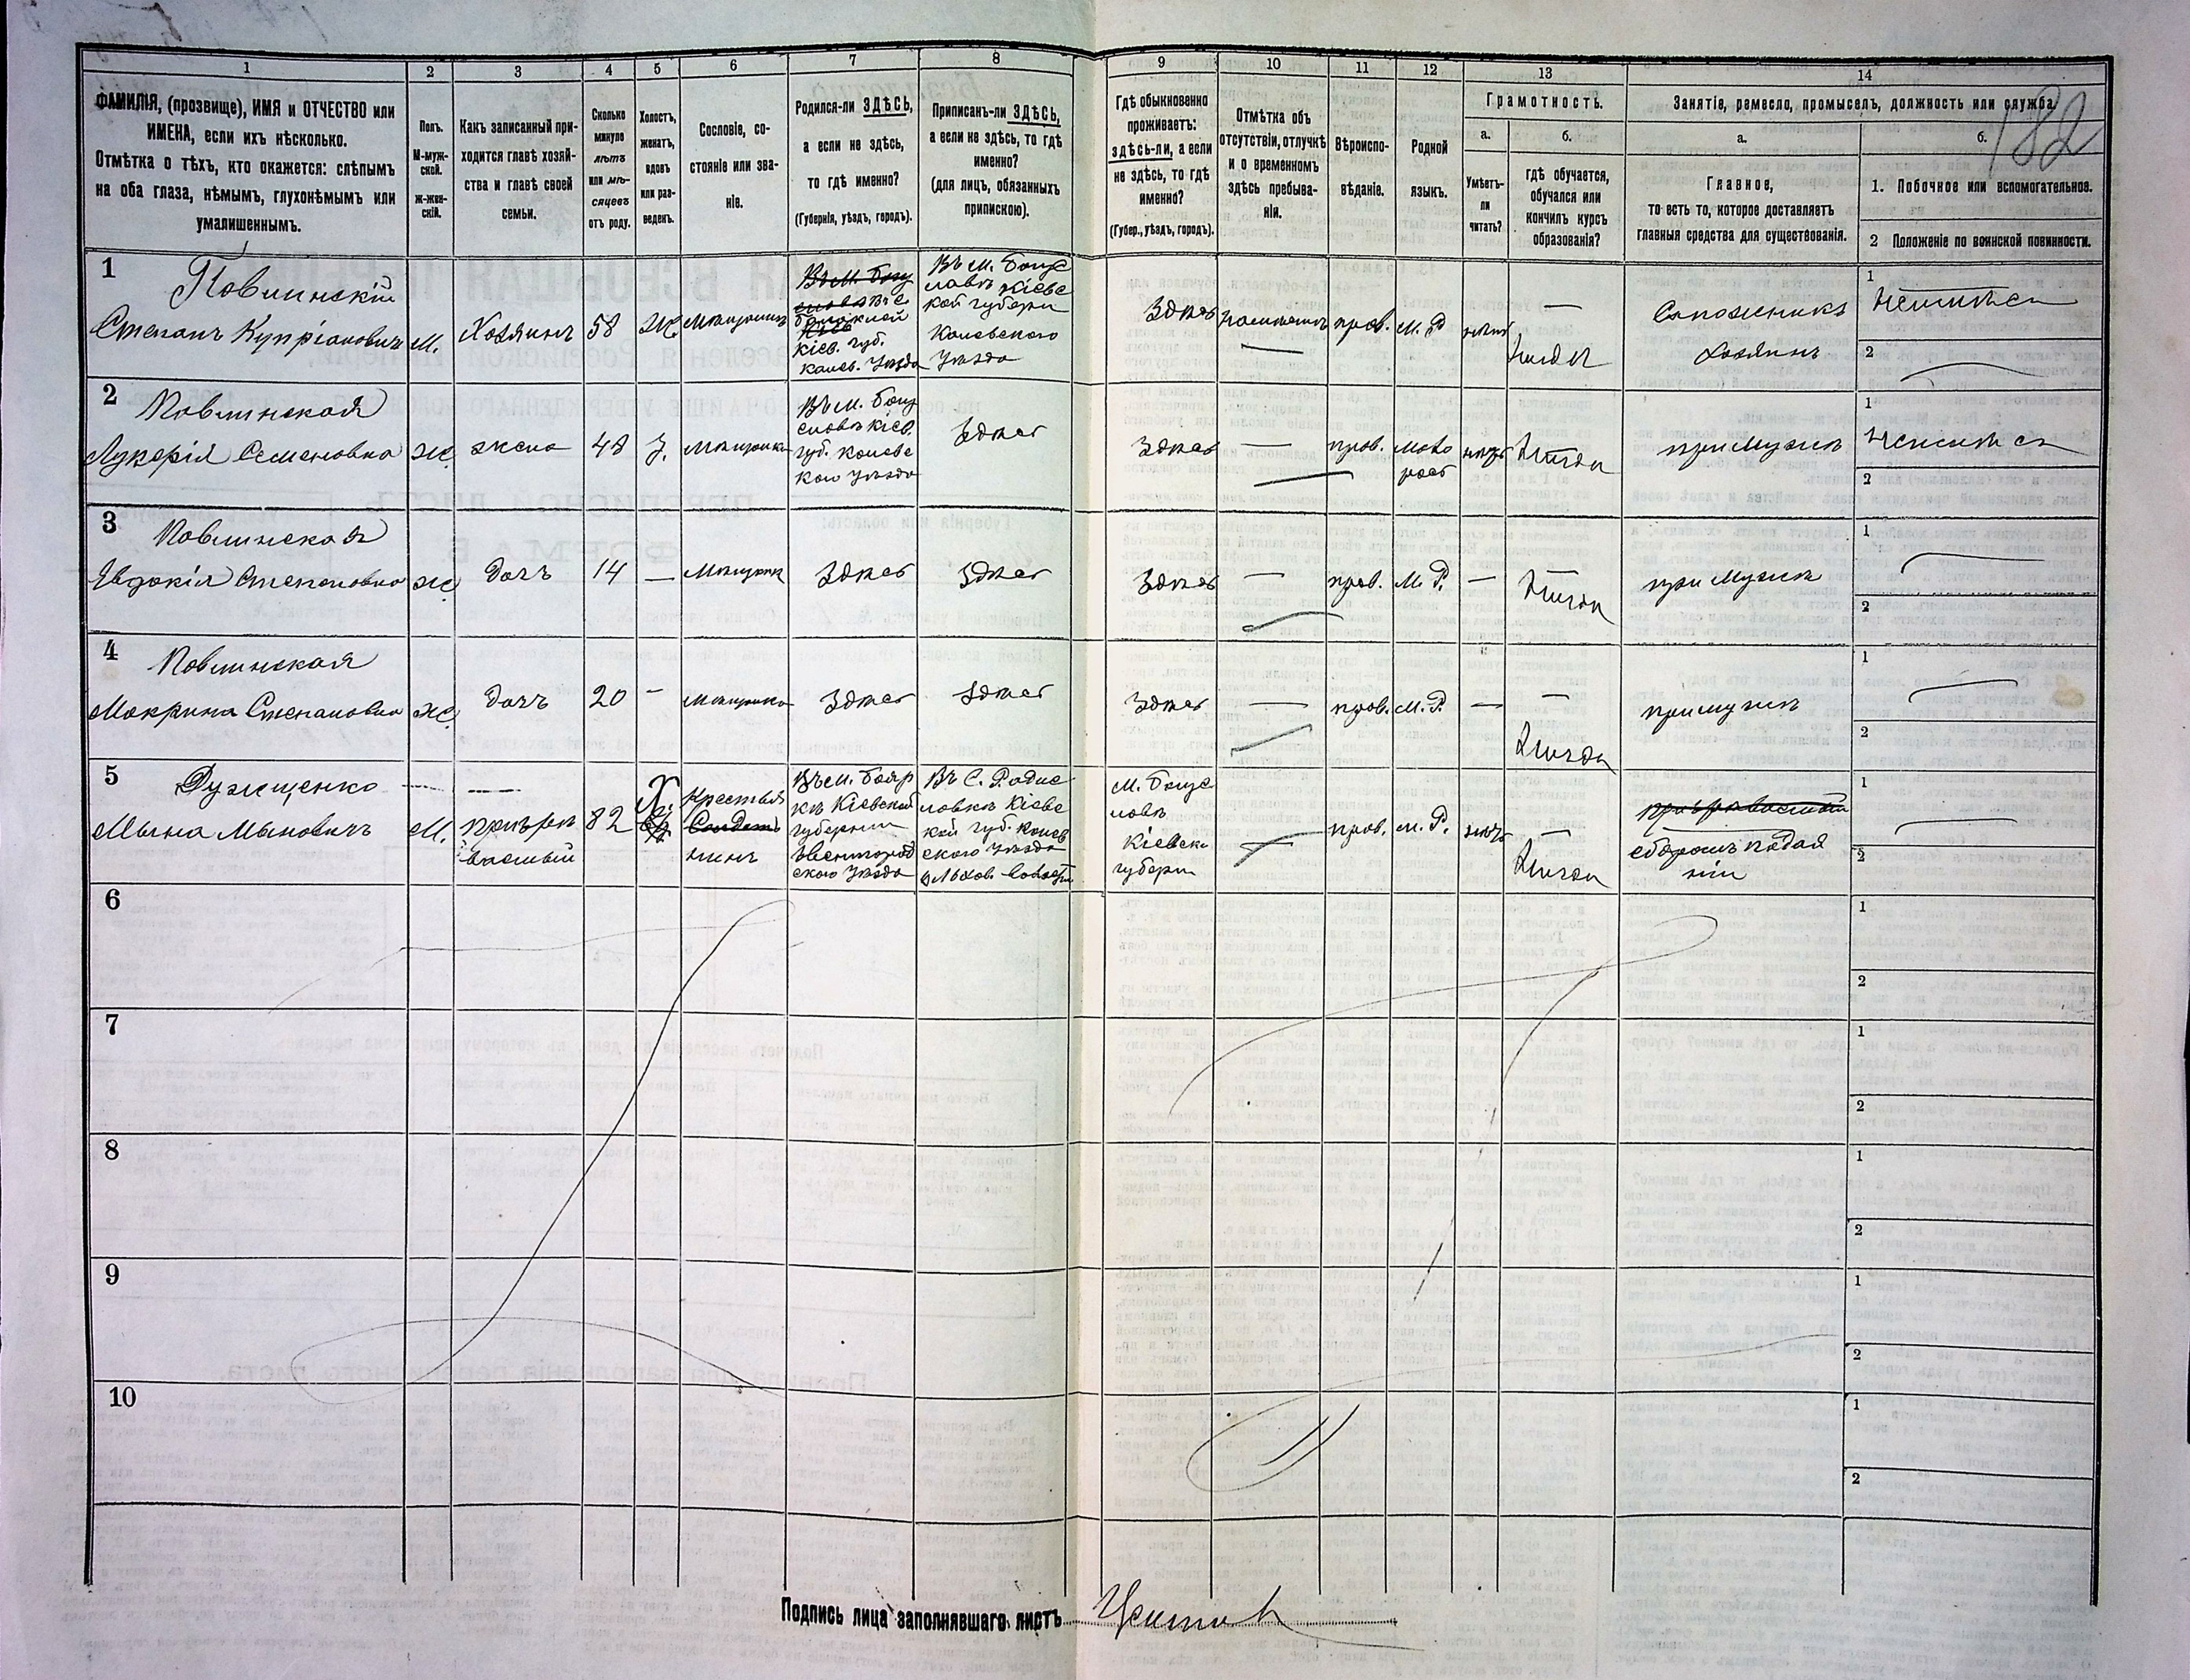 1 2 3 4 5 6 7 8 9 10 11 12 13 14
182
ФАМИЛІЯ, (прозвище), ИМЯ и ОТЧЕСТВО или
ИМЕНА, если ихъ нѣсколько.
Отмѣтка о тѣхъ, кто окажется: слѣпымъ
на оба глаза, нѣмымъ, глухонѣмымъ или
умалишеннымъ.
Полъ.
М-муж-
ской.
Ж-жен-
скій.
Какъ записанный при-
ходится главѣ хозяй-
ства и главѣ своей
семьи.
Сколько
минуло
лѣтъ
или мѣ-
сяцевъ
отъ роду.
Холостъ,
женатъ,
вдовъ
или раз-
веденъ.
Сословіе, со-
стояніе или зва-
ніе.
Родился-ли ЗДѢСЬ,
а если не здѣсь,
то гдѣ именно?
(Губернія, уѣздъ, городъ).
Приписанъ-ли ЗДѢСЬ,
а если не здѣсь, то гдѣ
именно?
(для лицъ, обязанныхъ
припискою).
Гдѣ обыкновенно
проживаетъ:
здѣсь-ли, а если
не здѣсь, то гдѣ
именно?
(Губер., уѣздъ, городъ).
Отмѣтка объ
отсутствіи, отлучкѣ
и о временномъ
здѣсь пребыва-
ніи.
Вѣроиспо-
вѣданіе.
Родной
языкъ.
Грамотность.
а.
Умѣетъ-
ли
читать?
б.
гдѣ обучается,
обучался или
кончилъ курсъ
образованія?
Занятіе, ремесло, промыселъ, должность или служба
а.
Главное,
то есть то, которое доставляетъ
главныя средства для существованія.
б.
1. Побочное или вспомогательное.
2 Положеніе по воинской повинности.
1
Повлинскій
Степанъ Купріановичъ
М.
Хозяинъ
58
Ж
Въ М. Богу
Кіев. Губ.
Канев. Уѣзда
Въ М. Богус
лавѣ Кіевс
кой губерн
Каневского
Уѣзда
Здѣсь
прав.
М. Р
Сапожникъ
Хозяинъ
1
2
2
Повлинская
Лукерія Семеновна
Ж
жена
48
З.
Въ М. Богу
славѣ Кіев.
Губ. Каневс
кого Уѣзда
Здѣсь
Здѣсь
—
прав.
Мало
росс
при мужѣ
1
2
3
Повлинская
Евдокія Степановна
Ж
дочь
14
—
Здѣсь
Здѣсь
Здѣсь
—
прав.
М. Р.
—
при мужѣ
1
2
4
Повлинская
Мокрина Степановна
Ж
дочь
20
—
Здѣсь
Здѣсь
Здѣсь
—
прав.
М. Р.
—
—
при мужѣ
1
2
5
Мына Мыновичъ
М.
82
Крестья
нинъ
Въ М. Бояр
кѣ Кіевской
губерніи
Звенигород
ского Уѣзда
Въ С. Родис
ловкѣ Кіевс
кой губ. Канев
ского Уѣзда
М. Богус
лавѣ
Кіевск
губерн
прав.
М. Р.
—
сборомъ подая
ніи
1
2
6
1
2
7
1
2
8
1
2
9
1
2
10
1
2
Подпись лица заполнявшаго листъ